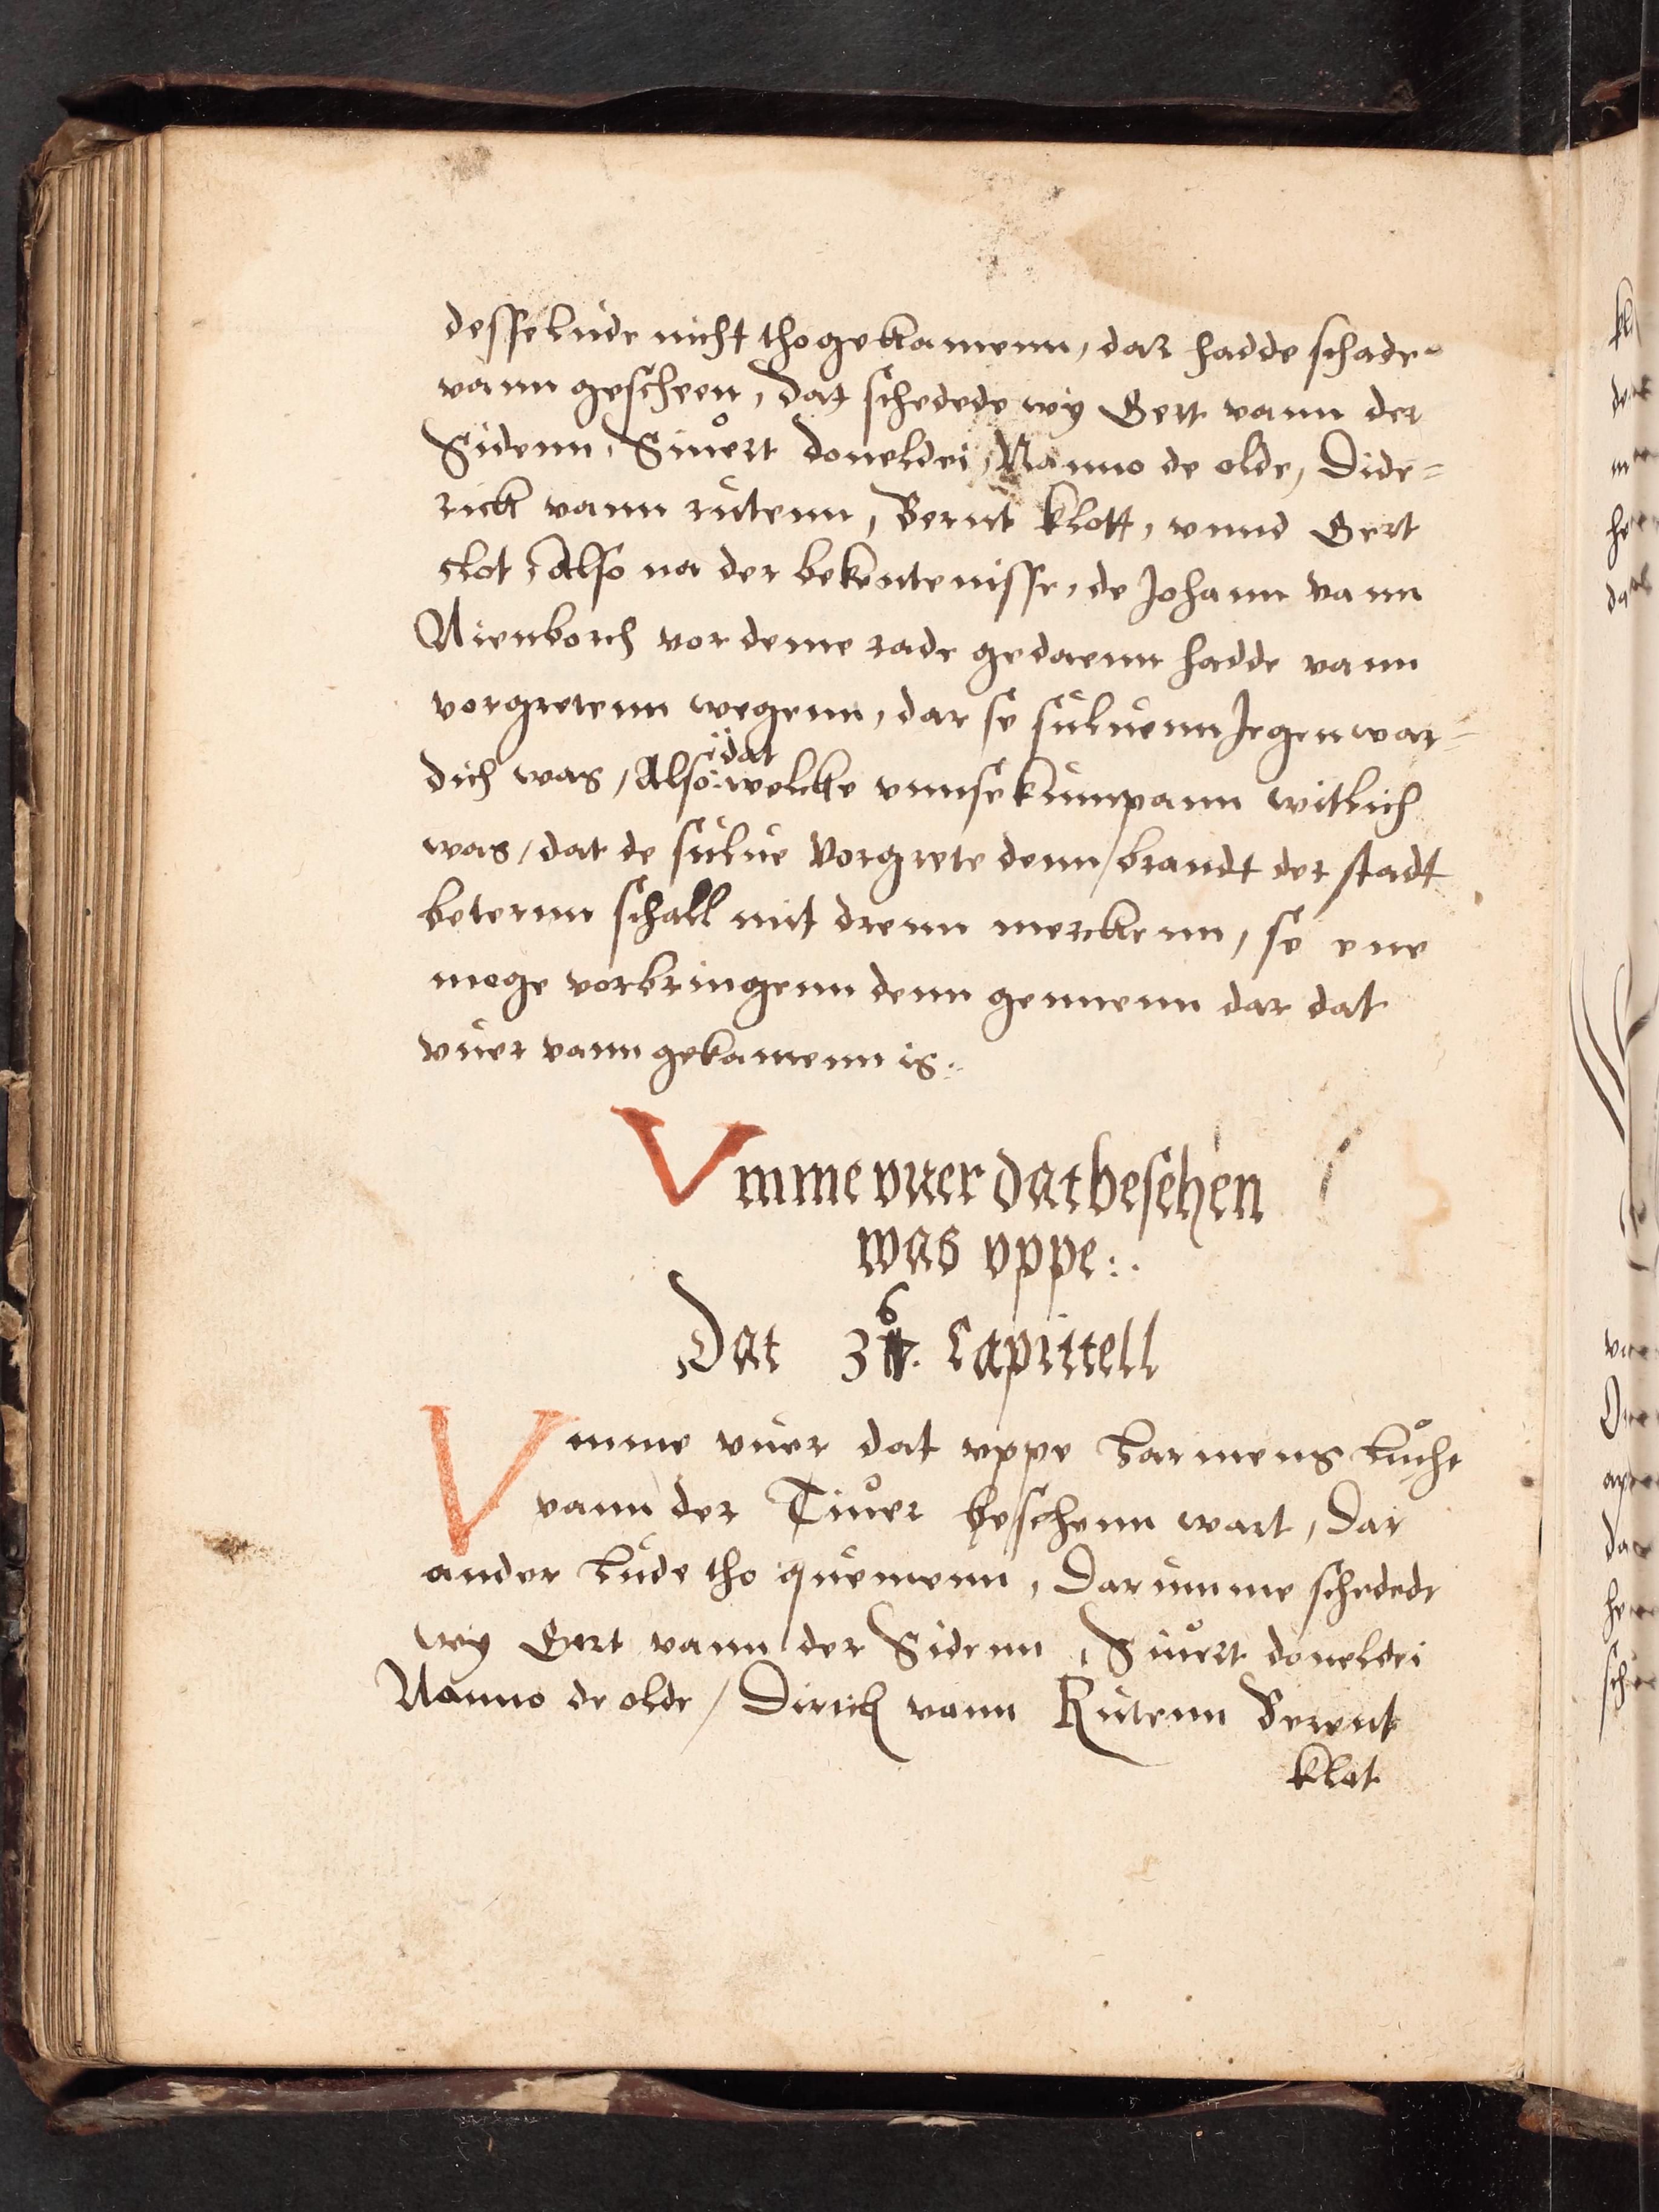 desse lude nicht thogekamenn, dar hadde schade
vann gescheen, dat schedede wy Gert vann der
Sidenn, Siuert doneldei, Nanno de olde, Dide=
rick vann rutenn, Bernt klott, vnnd Gert
clot, Also na der bekentenisse, de Johann vann
Nienborch vor deme rade gedaenn hadde vann
vorgretenn wegenn, dar se suluenn Jegenwar=
dich was, Also dat welcke vnnse kumpann witlich
was, dat de sulue Vorgrete denn brandt der stadt
beternn schall mit drenn merckenn, se ene
moge vorbringenn denn gennenn dar dat
vuer vann gekamenn is.
Vmme vuer dat beschen
was vppe:.
Dat 36. Capittell
Vmme vuer dat vppe Harmens luchte
vann der Tiuer beschenn wart, Dar
ander lude tho quemenn, Darumme schedede
wy Gert vann der Sidenn, Siuert doneldei
Nanno de olde, Dirick vann Rutenn Berent
klot